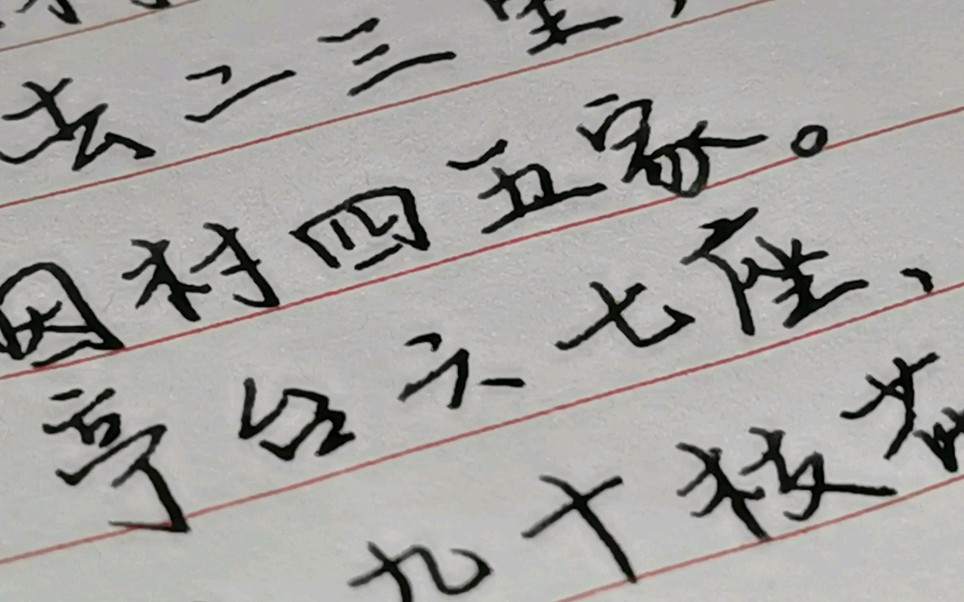 去二三里，
因村四五家。
亭台六七座、
九十枝花